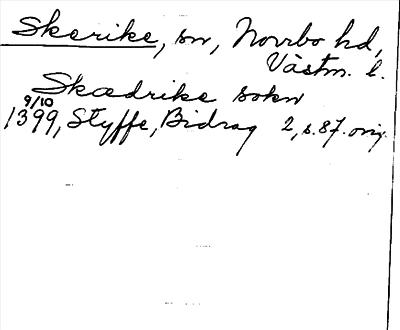 Skerike, sn, Norrbo hd,
Västm. l.
Skædrike sokn
9/10
1399, Styffe, Bidrag 2, s. 87. orig.